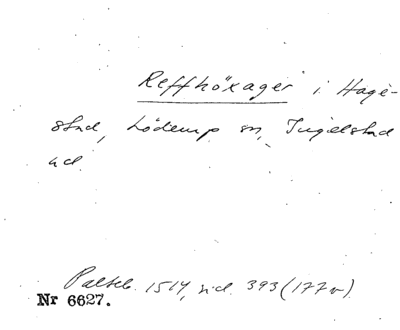 Reffhöxager i Hage-
stad, Löderup sn, Ingelstad
hd.
Palteb. 1514, sid. 393 (177 v).
Nr 6627.